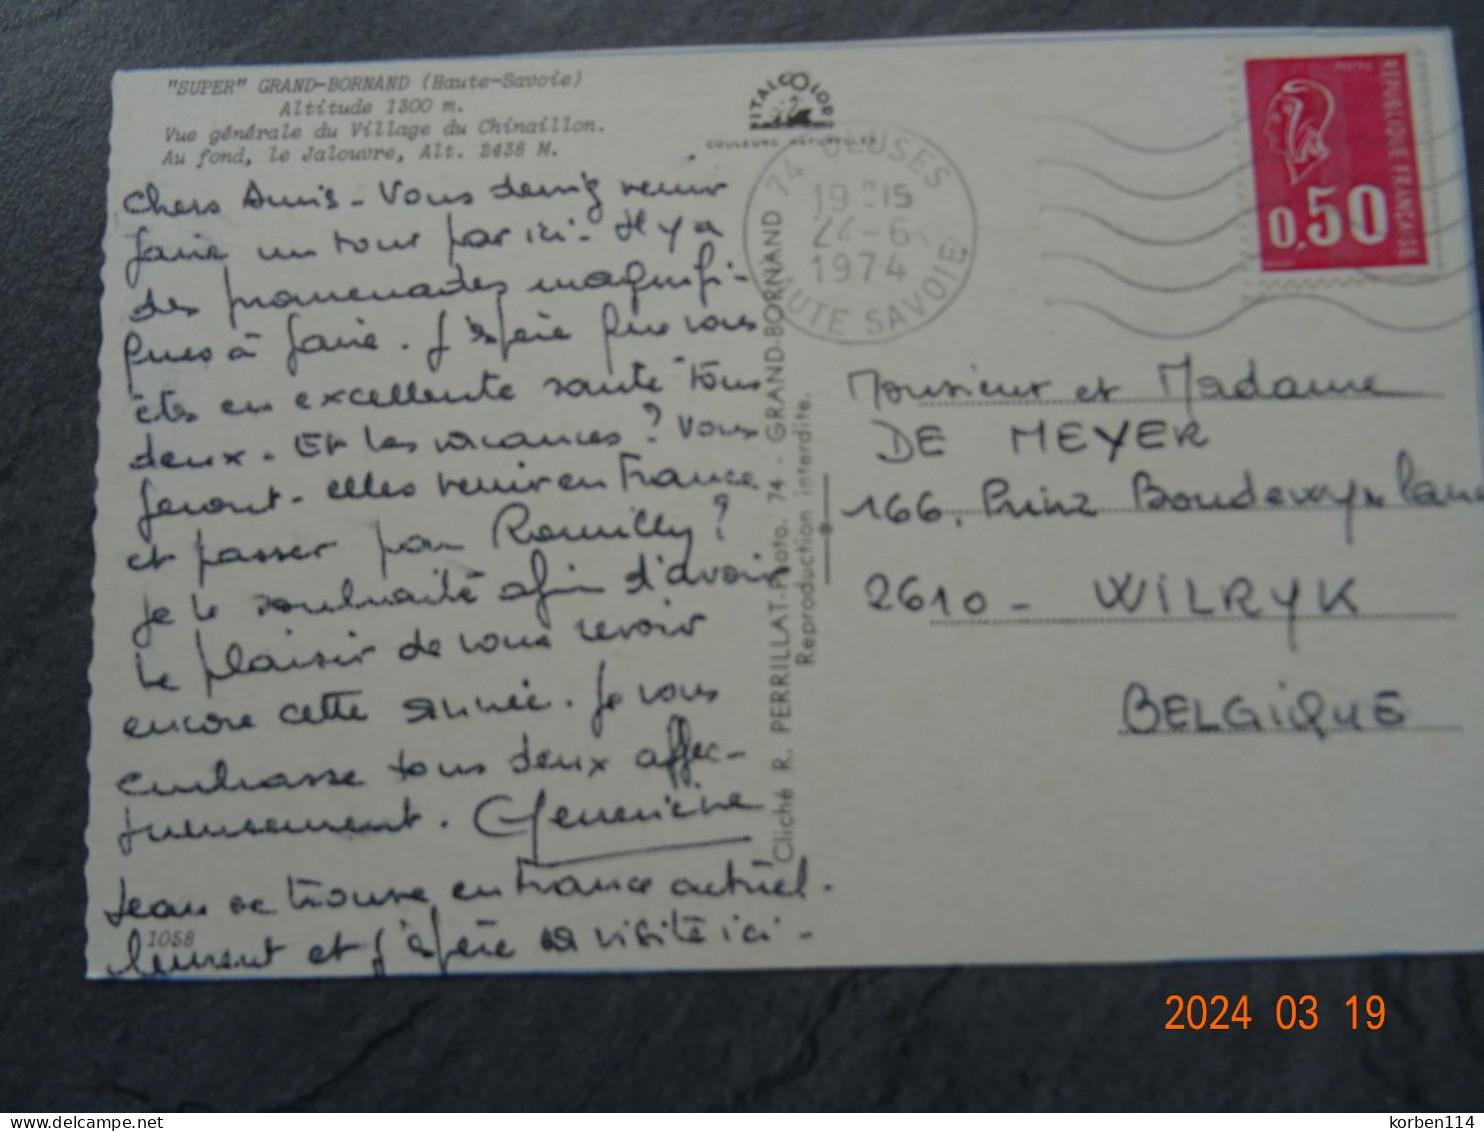 "SUPER" GRAND-BORNAND (Haute-Savoie)
Altitude 1300 m.
Vue générale du Village du Chinaillon.
Au fond, le Jalouvre, Alt. 2438 M.
ITALCOLOR
COULEURS NATURELLES
Chers Amis - Vous devriez venir
faire un tour par ici - Il y a
des promenades magnifi-
ques à faire. J'espère que vous
êtes en excellente santé tous
deux. Et les vacances ? Vous
feront-elles venir en France
et passer par Romilly ?
Je le souhaite afin d'avoir
le plaisir de vous revoir
encore cette année. Je vous
embrasse tous deux affec-
tueusement. Geneviève
Jean se trouve en France actuel-
lement et j'espère sa visite ici -
1058
Cliché R. PERRILLAT-Photo. 74 - GRAND-BORNAND
Reproduction interdite.
74 CLUSES
19 H15
24-6
1974
HAUTE SAVOIE
REPUBLIQUE FRANÇAISE
0,50
Monsieur et Madame
DE MEYER
166, Prinz Boudewynlaan
2610 - WILRYK
BELGIQUE
2024 03 19
korben114